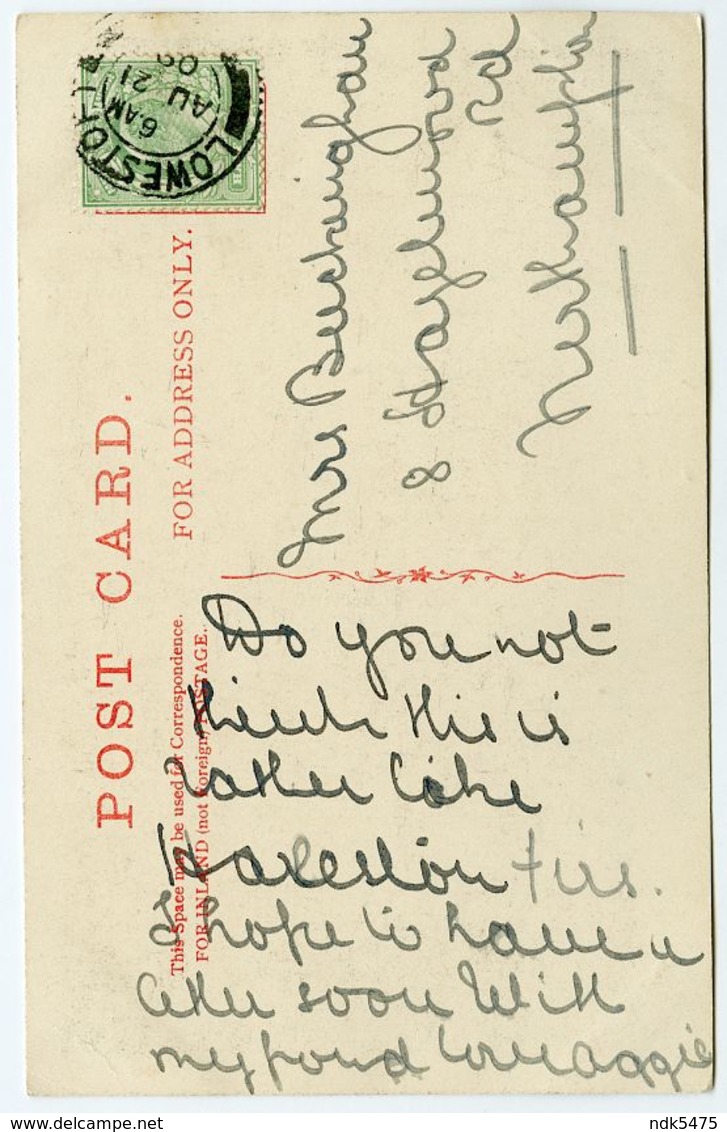 POST CARD.
FOR ADDRESS ONLY.
This Space may be used for Correspondence.
FOR INLAND (not Foreign) POSTAGE.
LOWESTOFT
6 AM
AU 21
09
Mrs Buckingham
8 Hazelwood
Rd
Northampton
Do you not
think this is
rather like
Harlestone Firs.
I hope to have a
letter soon With
my fond love Aggie
ndk5475